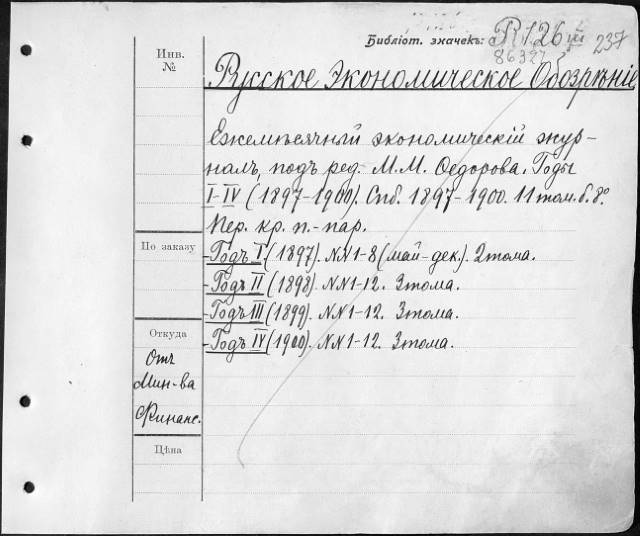 Библіот. значекъ: R 126 III 237
86327
Инв.
№
Русское Экономическое Обозрѣніе
Ежемѣсячный экономическій жур-
налъ, подъ ред. М. М. Ѳедорова. Годы
I-IV (1897-1900). Спб. 1897-1900. 11 том. б. 8°.
Пер. кр. п.-пар.
По заказу
-Годъ I (1897). NN 1-8 (май-дек.). 2 тома.
-Годъ II (1898). NN 1-12. 3 тома.
-Годъ III (1899). NN 1-12. 3 тома.
-Годъ IV (1900). NN 1-12. 3 тома.
Откуда
Отъ
Мин-ва
Финанс.
Цѣна